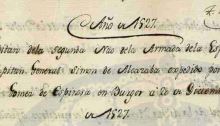 Año de 1527.
pitan dela segunda Nao dela Armada dela Es
apitan General Simon de Alcazaba expedido por
Gomez de Espinosa en Burgos á 20 de Diciemb
de 1527.